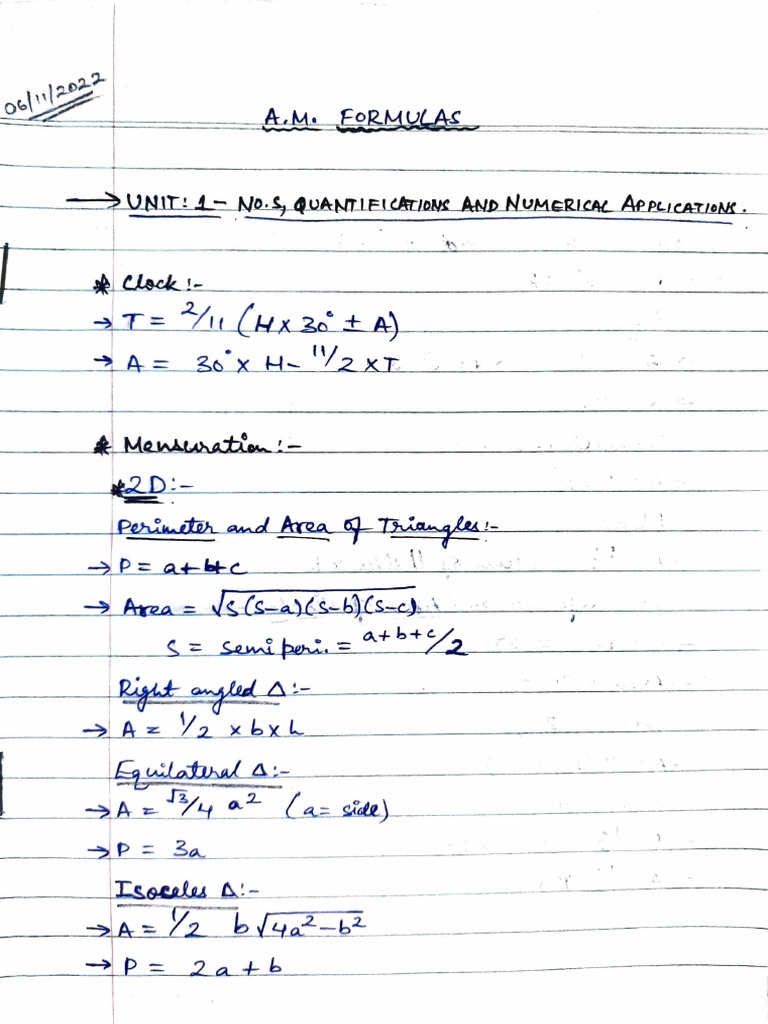 06/11/2022
A.M. FORMULAS
→ UNIT: 1 - NO.S, QUANTIFICATIONS AND NUMERICAL APPLICATIONS.
* Clock :-
→ T = 2/11 (H x 30° ± A)
→ A = 30° x H - 11/2 x T
* Mensuration :-
* 2D :-
Perimeter and Area of Triangles :-
→ P = a+b+c
→ Area = √s(s-a)(s-b)(s-c)
S = semi peri. = a+b+c/2
Right angled Δ :-
→ A = 1/2 x b x h
Equilateral Δ :-
→ A = √3/4 a² (a = side)
→ P = 3a
Isoceles Δ :-
→ A = 1/2 b √4a²-b²
→ P = 2a + b